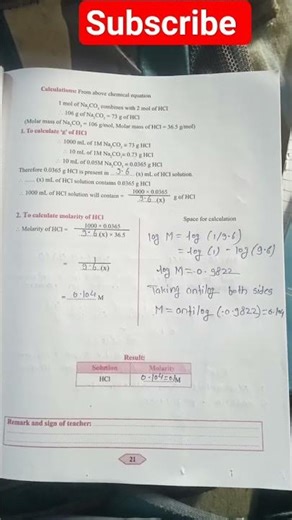 Subscribe
Calculations: From above chemical equation
1 mol of Na₂CO₃ combines with 2 mol of HCl
106 g of Na₂CO₃ = 73 g of HCl
(Molar mass of Na₂CO₃ = 106 g/mol, Molar mass of HCl = 36.5 g/mol)
1. To calculate 'g' of HCl
1000 mL of 1M Na₂CO₃ = 73 g HCl
∴ 10 mL of 1M Na₂CO₃ = 0.73 g HCl
∴ 10 mL of 0.05M Na₂CO₃ = 0.0365 g HCl
Therefore 0.0365 g HCl is present in 9.6 (x) mL of HCl solution.
∴ ........ (x) mL of HCl solution contains 0.0365 g HCl
∴ 1000 mL of HCl solution will contain = 1000 × 0.0365 / 9.6 (x) g of HCl
2. To calculate molarity of HCl
Molarity of HCl = 1000 × 0.0365 / 9.6 (x) × 36.5
= 1 / 9.6 (x)
= 0.104 M
Space for calculation
log M = log (1/9.6)
= log (1) - log (9.6)
log M = -0.9822
Taking antilog both sides
M = antilog (-0.9822) = 0.104
Result:
Solution Molarity
HCl 0.104 M
Remark and sign of teacher:
21